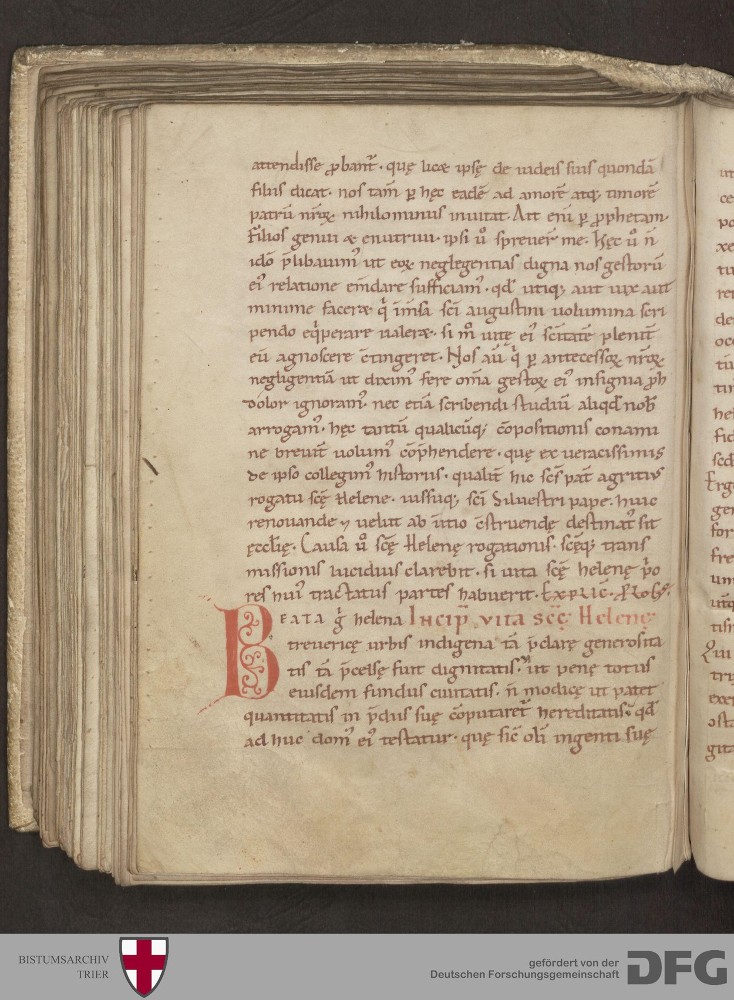 attendisse ꝓbant᷑. quę licæ ipsę de iudeis suis quondā
filiis dicat. nos tam̄ ꝑ hęc eadē ad amorē atq; timorē
patrū nr̄oꝝ nihilominus inuitat. Ait eni ꝑ ꝓphetam.
Filios genui æ enutriui. ipsi u̅ spreuer̄ me. hęc u̅ n̄
idō p̄libauim᷒ ut eoꝝ neglegentias digna nos gestorū
ei᷒ relatione em̄dare sufficiam᷒. qd̄ utiq; aut uix aut
minime faceræ q̇ im̄sa sc̄i augustini uolumina scri
pendo eq̇perare ualeræ. si m̊ uitę ei᷒ sc̄itatē plenit᷑
eū agnoscere c̄tingeret. Nos aū q̇ ꝑ antecessoꝝ nr̄oꝝ
negligentiā ut dixim᷒ fere om̄a gestoꝝ ei᷒ insignia ꝓh
dolor ignoram᷒. nec etiā scribendi studiū aliqd̄ nob̄
arrogam᷒. hęc tantū qualicūq; cōpositionis conami
ne breuit᷑ uolum᷒ cōp̄hendere. quę ex ueracissimis
de ipso collegim᷒ historiis. qualit᷑ hic sc̄s pat᷑ agritius
rogatu sc̄ę Helene. iussuq; sc̄i Siluestri pape. huic
renouande & uelut ab initio c̄struendę destinat᷒ sit
ęccl̄ię. Causa u̅ sc̄ę Helenę rogationis. sc̄ęq; trans
missionis lucidius clarebit. si uita sc̄ę helenę p̄o
res hui᷒ tractatus partes habuerit. Explic̄. Prolog᷒.
Beata g̊ helena Incip̄ vita sc̄ę Helenę
treuericę urbis indigena tā p̄clarę generosita
tis tā p̄celsę fuit dignitatis. ut penę totus
eiusdem fundus ciuitatis. n̄ modicę ut patet
quantitatis in p̄diis suę cōputaret᷑ hereditatis. qd̄
ad huc dom᷒ ei᷒ testatur. quę sic̄ oli ingenti suę
BISTUMSARCHIV
TRIER
gefördert von der
Deutschen Forschungsgemeinschaft
DFG